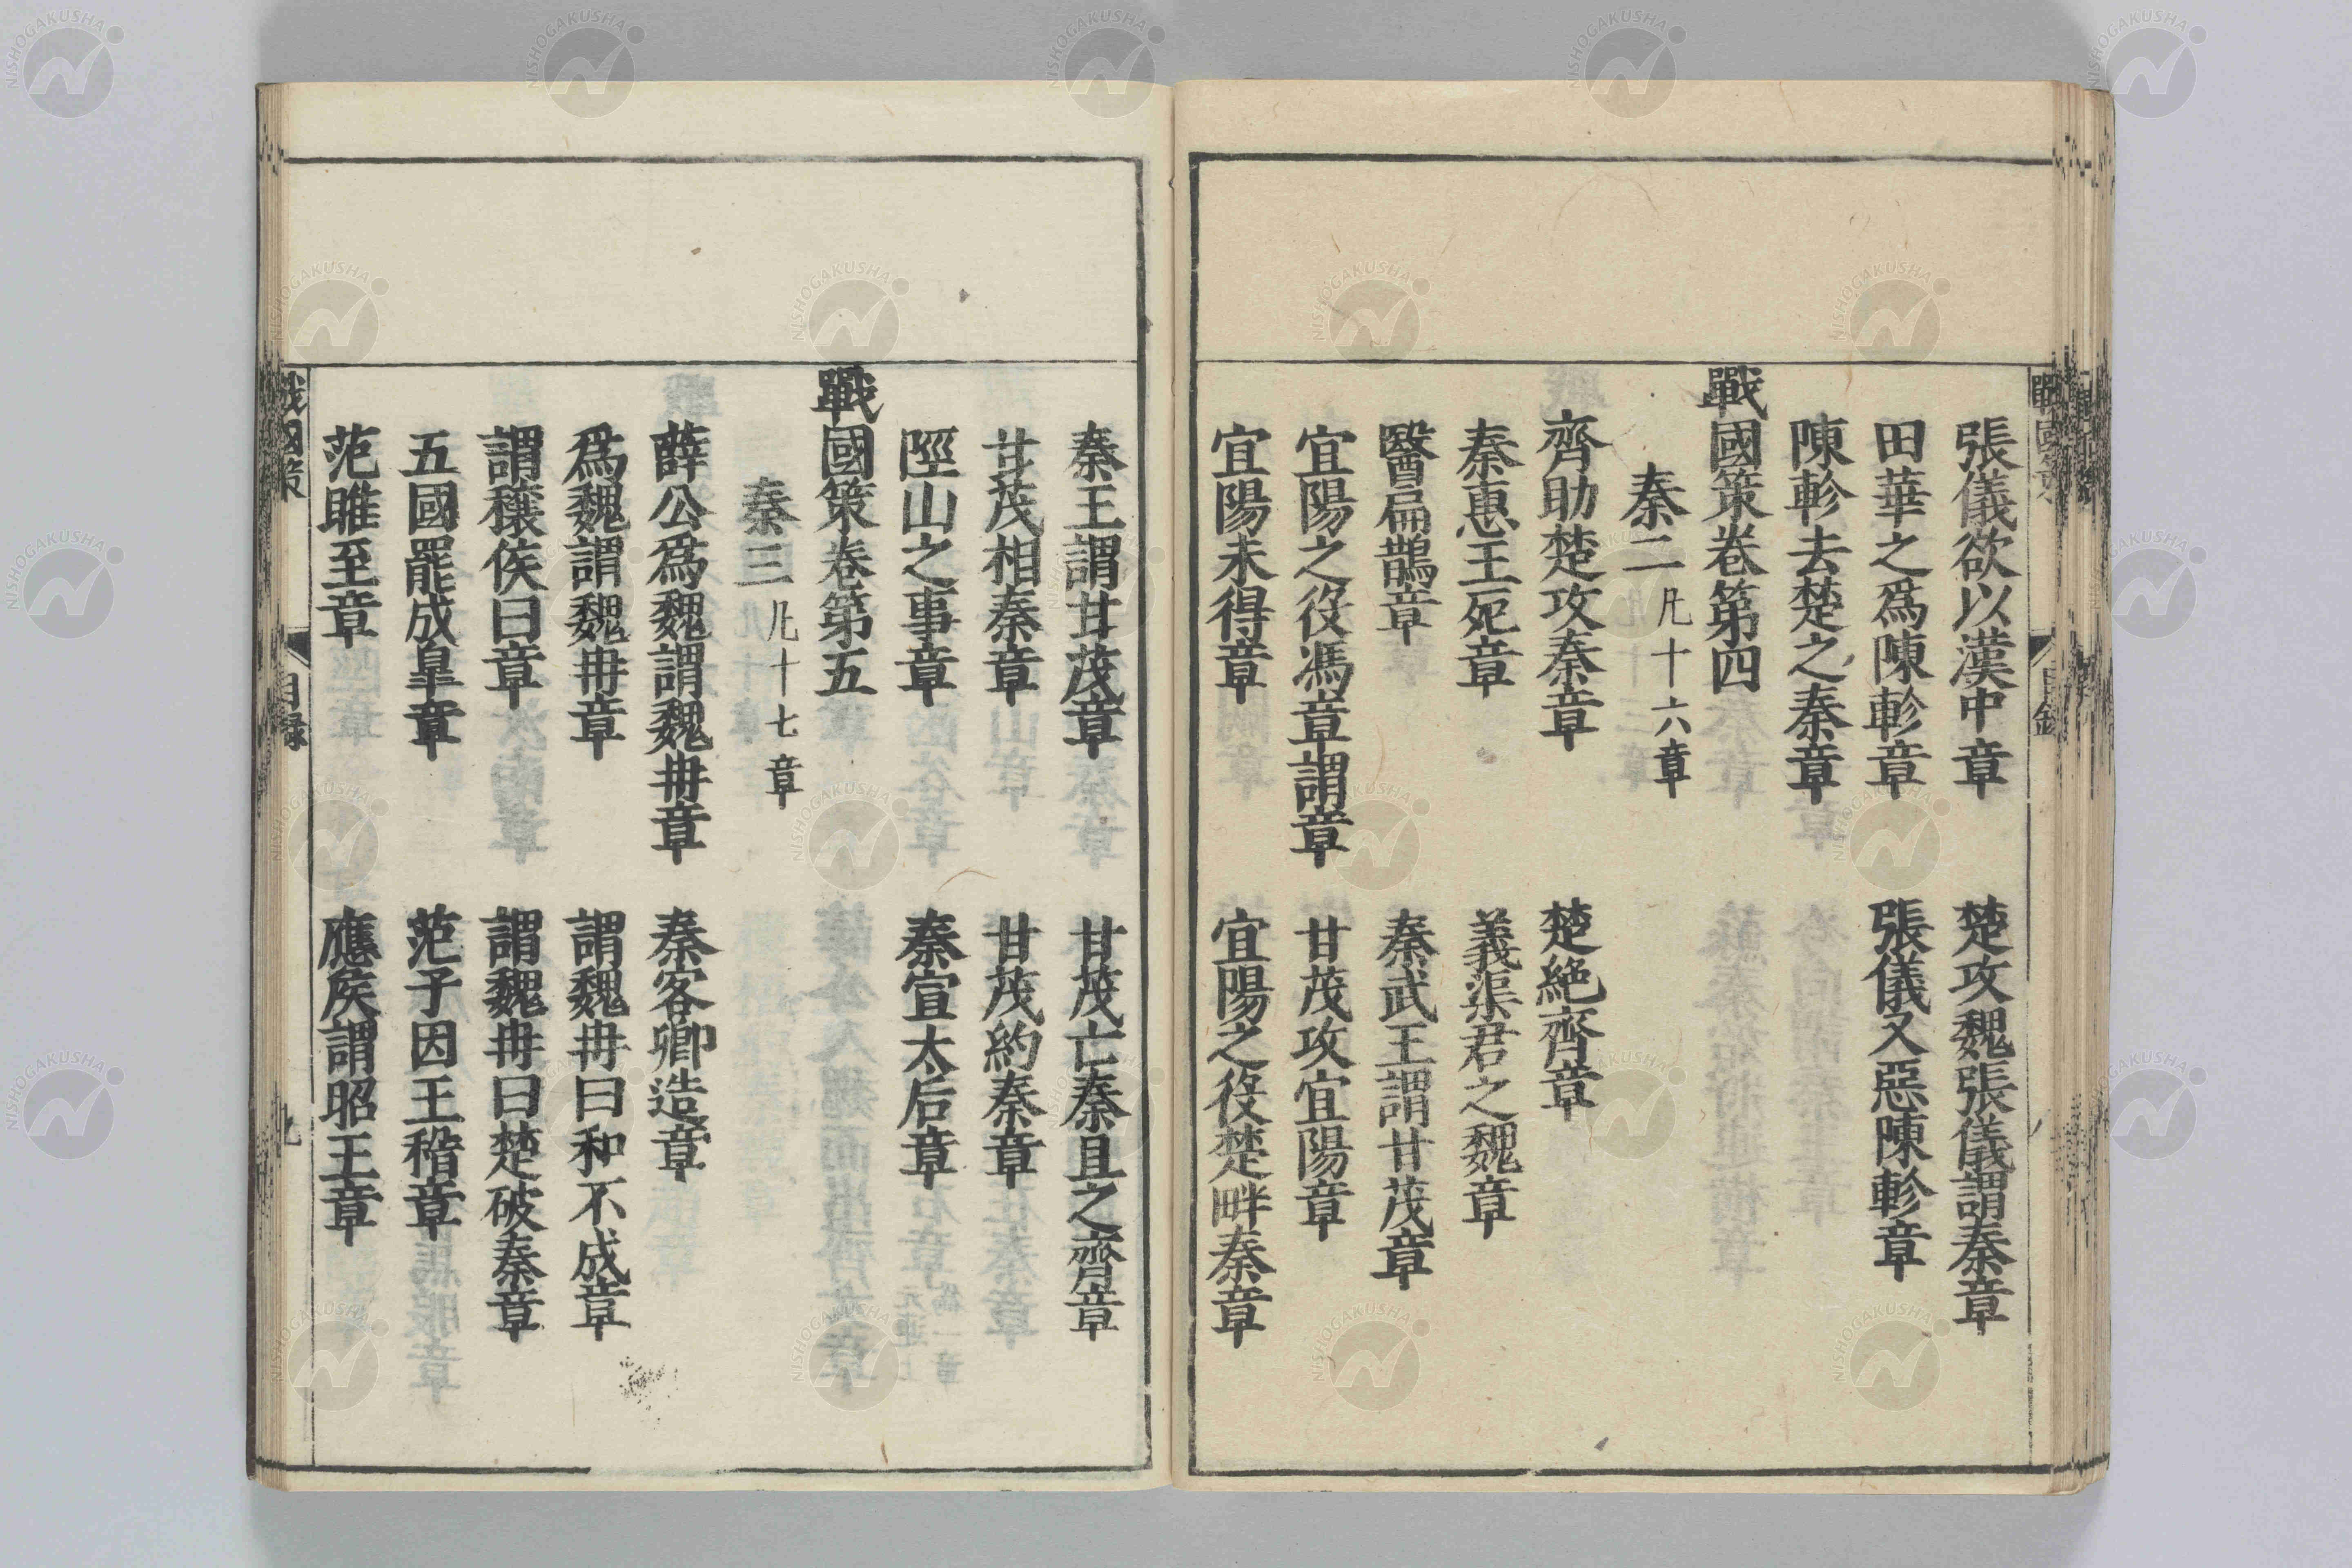 張儀欲以漢中章　楚攻魏張儀謂秦章
田華之爲陳軫章　張儀又惡陳軫章
陳軫去楚之秦章
戰國策卷第四
秦二 凡十六章
齊助楚攻秦章　楚絶齊章
秦惠王死章　義渠君之魏章
醫扁鵲章　秦武王謂甘茂章
宜陽之役馮章謂章　甘茂攻宜陽章
宜陽未得章　宜陽之役楚畔秦章
秦王謂甘茂章　甘茂亡秦且之齊章
甘茂相秦章　甘茂約秦章
陘山之事章　秦宣太后章
戰國策卷第五
秦三 凡十七章
薛公爲魏謂魏冉章　秦客卿造章
爲魏謂魏冉章　謂魏冉曰和不成章
謂穰侯曰章　謂魏冉曰楚破秦章
五國罷成皐章　范子因王稽章
范雎至章　應侯謂昭王章
戰國策　目録　九
NISHOGAKUSHA